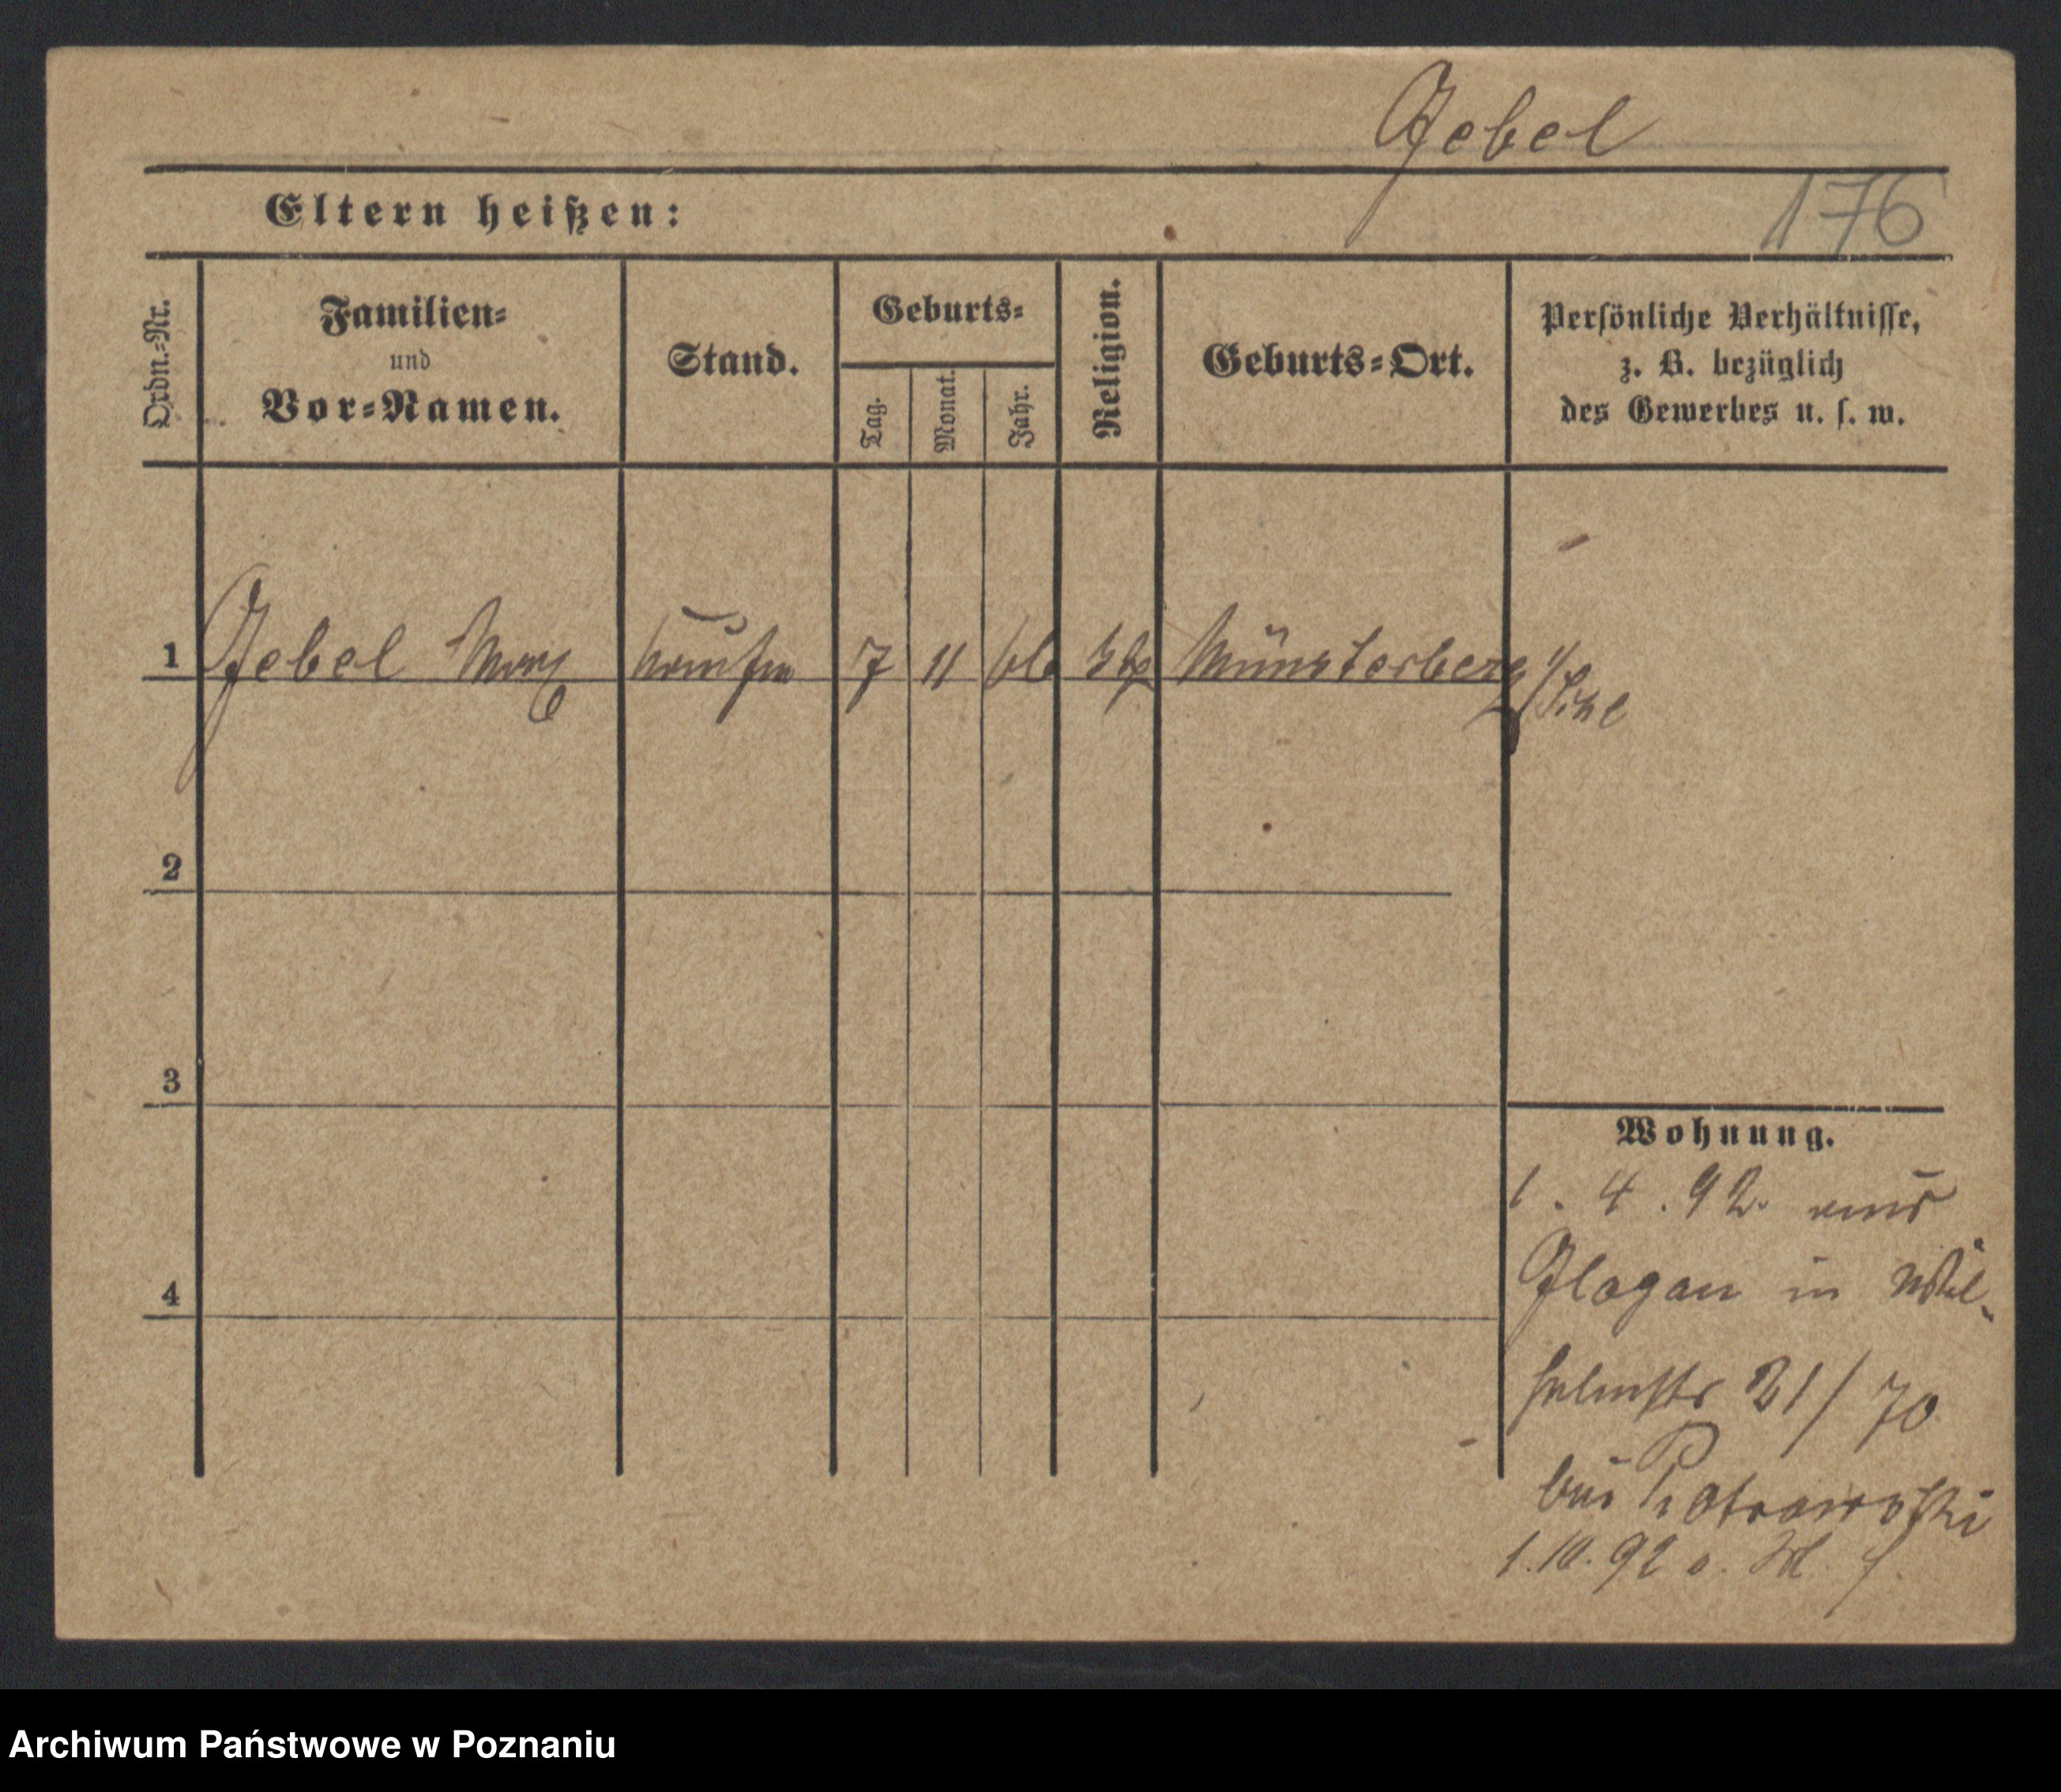 Gebel
176
Eltern heißen:
Ordn.-Nr.
Familien-
und
Vor-Namen.
Stand.
Geburts-
Tag.
Monat.
Jahr.
Religion.
Geburts-Ort.
Persönliche Verhältnisse,
z. B. bezüglich
des Gewerbes u. s. w.
1 Gebel Max 7 11 Münsterberg
2
3
4
Wohnung.
1. 4. 92. aus
Glogau in Wil-
helmstr 21/70
bei
1.10.92
Archiwum Państwowe w Poznaniu